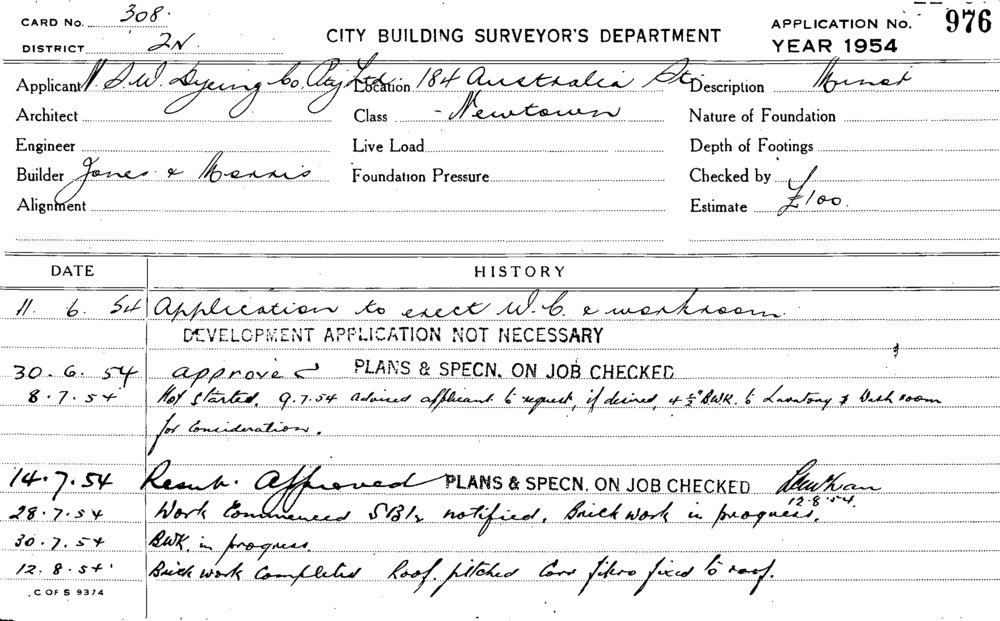 CARD No. 308.
DISTRICT 2N.
CITY BUILDING SURVEYOR'S DEPARTMENT
APPLICATION No. 976
YEAR 1954
Applicant N.S.W. Dyeing Co. Pty Ltd Location 184 Australia St Description Minor
Architect Class - Newtown Nature of Foundation
Engineer Live Load Depth of Footings
Builder Jones & Morris Foundation Pressure Checked by
Alignment Estimate £100.
DATE HISTORY
11. 6. 54 Application to erect W.C. & workroom.
DEVELOPMENT APPLICATION NOT NECESSARY
30.6.54 approved PLANS & SPECN. ON JOB CHECKED
8.7.54 Not started. 9.7.54 advised applicant to request, if desired, 4½" BWK. to Lavatory & Wash room
for consideration.
14.7.54 Resub. Approved PLANS & SPECN. ON JOB CHECKED
12.8.54.
28.7.54 Work Commenced notified. Brickwork in progress.
30.7.54 BWK. in progress.
12.8.54 Brickwork Completed Roof pitched Corr fibro fixed to roof.
C OF S 9374